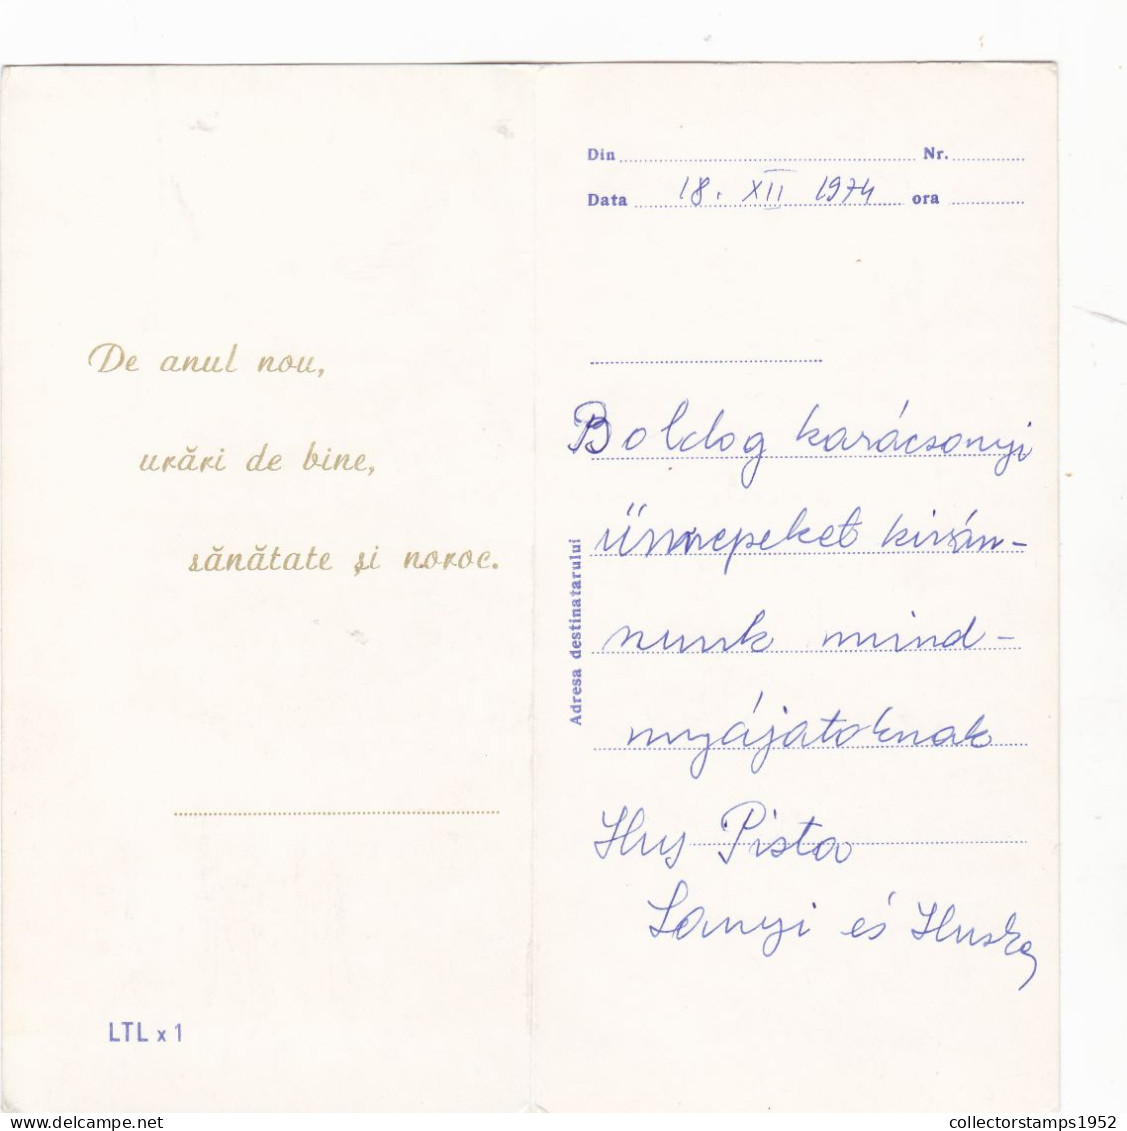 De anul nou,
urări de bine,
sănătate și noroc.
LTL x 1
Din Nr.
Data 18. XII 1974 ora
Adresa destinatarului
Boldog karácsonyi
ünnepeket kíván-
nunk mind-
nyájatoknak
Pista
és
collectorstamps1952